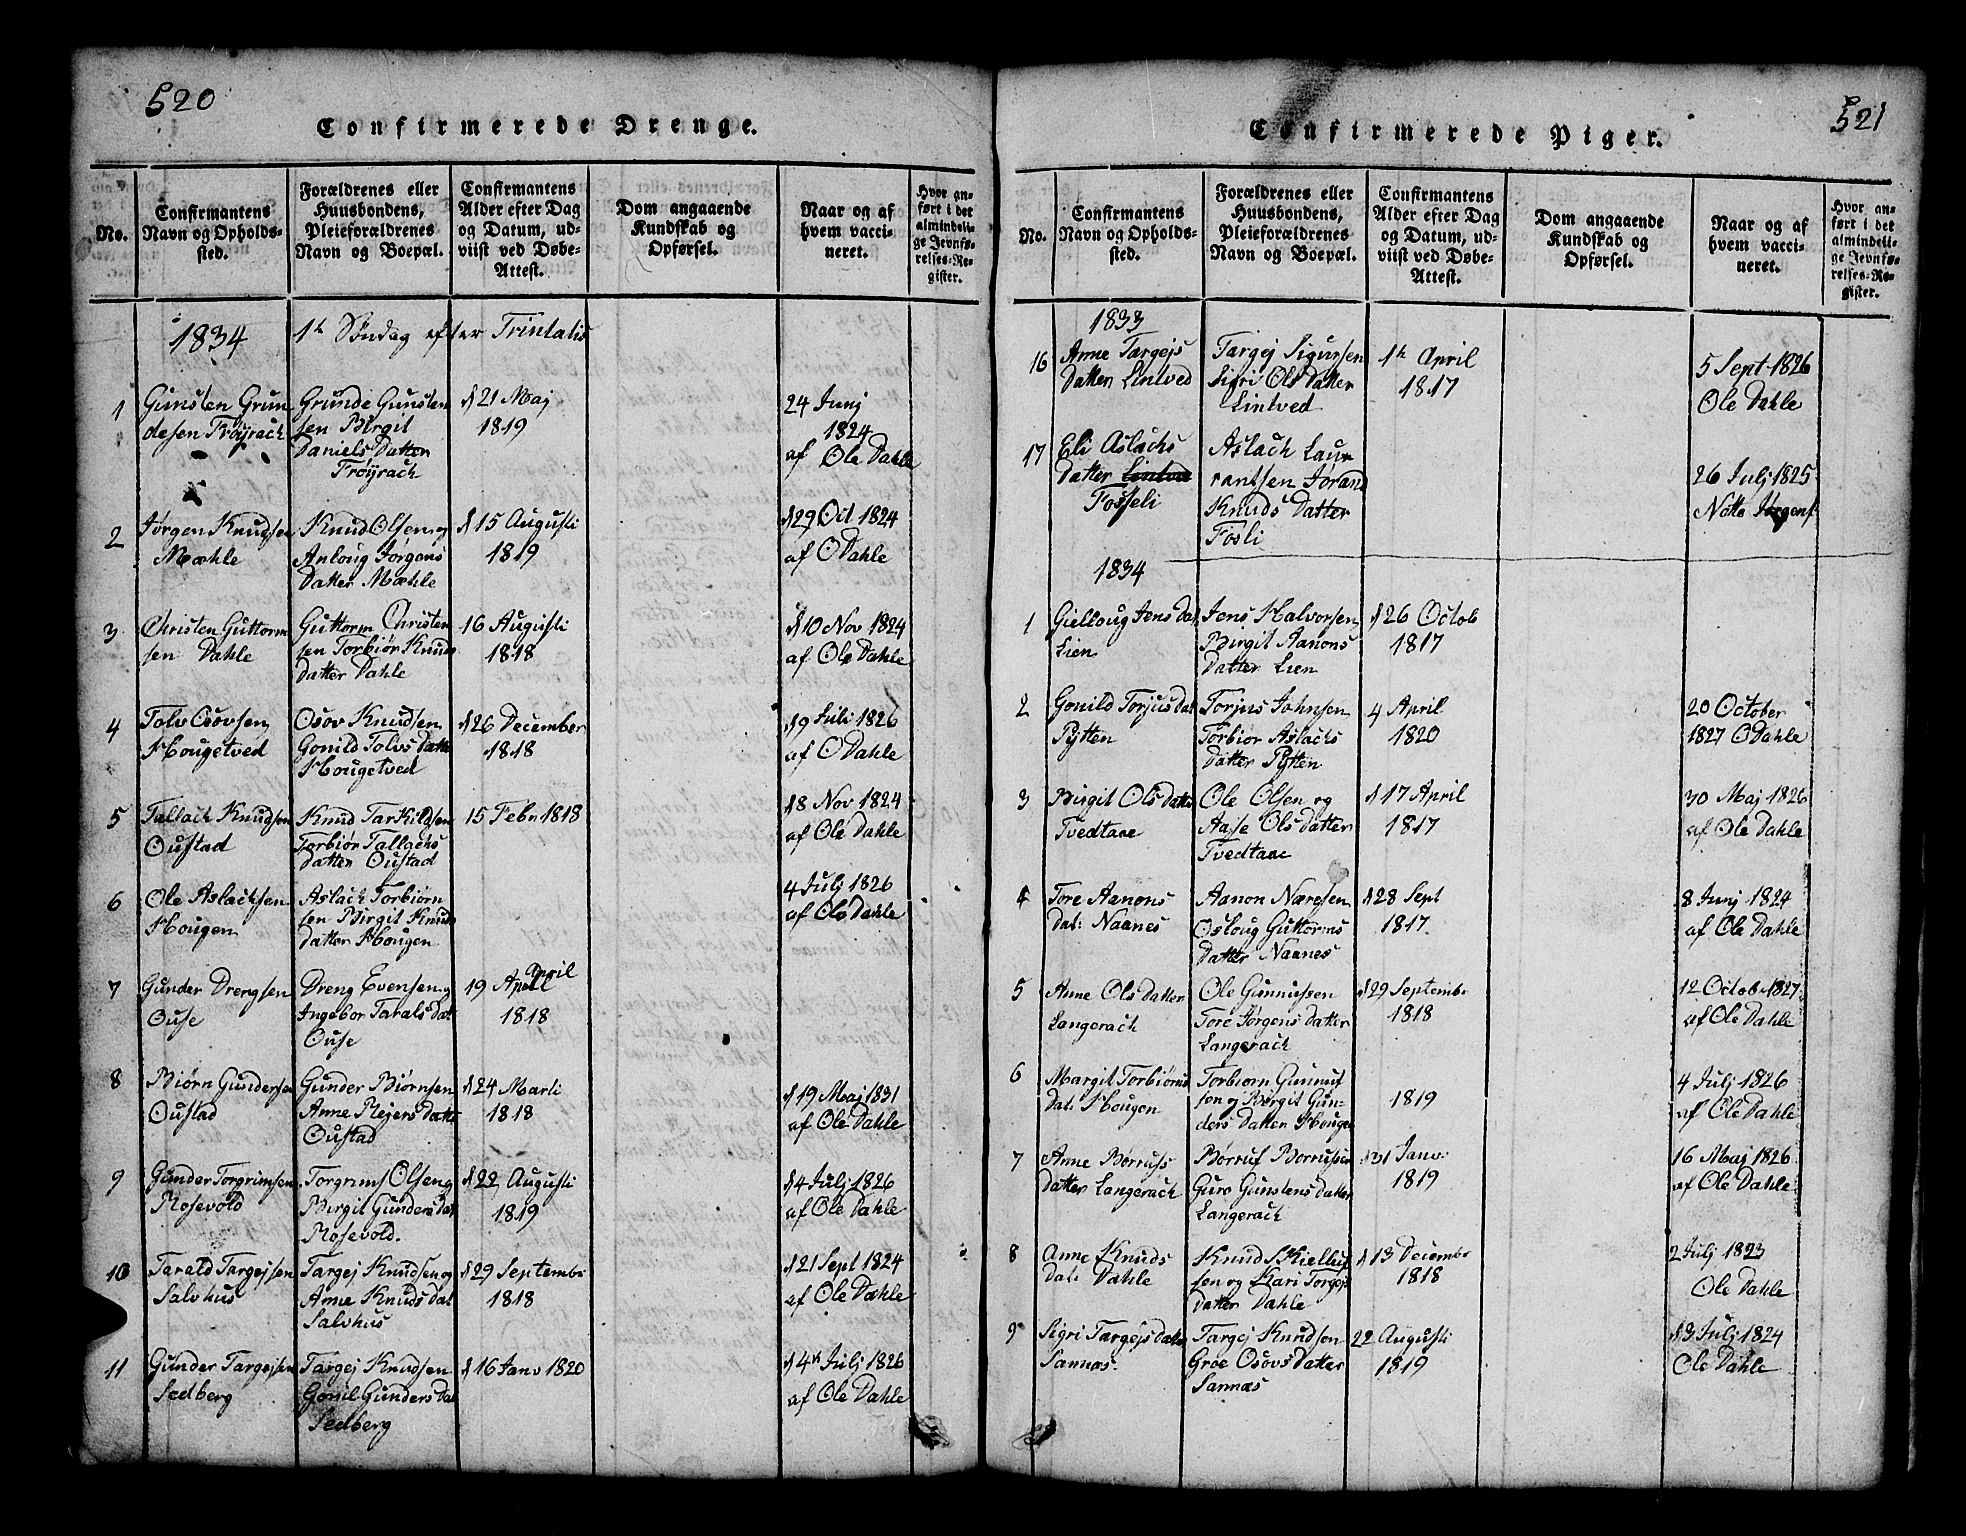 520
Confirmerede Drenge.
No.
Confirmantens
Navn og Opholds-
sted.
Forældrenes eller
Huusbondens,
Pleieforældrenes
Navn og Boepæl.
Confirmantens
Alder efter Dag
og Datum, ud-
viist ved Døbe-
Attest.
Dom angaaende
Kundskab og
Opførsel.
Naar og af
hvem vacci-
neret.
Hvor an-
ført i det
almindeli-
ge Jevnfø-
relses-Re-
gister.
1834 1h Søndag efter Trintatis
1
Gunsten Grun
desen Frøyrach
Grunde Gunsten
sen Birgit
Daniels Datter
Frøyrach
d 21 Maj
1819
24 Junj
1824
af Ole Dahle
2
Jørgen Knudsen
Mæhle
Knud Olsen og
Anloug Jørgens
Datter Mæhle
d 15 Augusti
1819
d 29 Oct 1824
af O Dahle
3
Christen Guttorm
sen Dahle
Guttorm Christen
sen Torbiør Knuds
datter Dahle
16 Augusti
1818
d 10 Nov 1824
af Ole Dahle
4
Tolv Osovsen
Hougetved
Osov Knudsen
Gonild Tolvs Datt
Hougetved
d 26 December
1818
d 9 Juli 1826
af O Dahle
5
Tallach Knudsen
Oustad
Knud Tarkildsen
Torbiør Tallachs
datter Oustad
15 Febr 1818
18 Nov 1824
af Ole Dahle
6
Ole Aslachsen
Hougen
Aslach Torbiørn
sen Birgit Knuds
datter Hougen
4 Julj 1826
af Ole Dahle
7
Gunder Drengsen
Ouse
Dreng Evensen og
Ingebor Tarals Dat
Ouse
19 April
April
1818
8
Biørn Gundersen
Oustad
Gunder Biørnsen
Anne Rejers Datte
Oustad
d 24 Marti
1818
d 19 Maj 1831
af Ole Dahle
9
Gunder Torgrimsen
Rosevold
Torgrim Olsen og
Birgit Gunders Dat
Rosevold.
d 22 Augusti
1819
d 4 Julj 1826
af Ole Dahle
10
Tarald Targejsen
Salvhus
Targej Knudsen og
Anne Knuds Dat
Salvhus
d 29 Septembr
1818
d 21 Sept 1824
af Ole Dahle
11
Gunder Targejsen
Sedberg
Targej Knudsen
Gonil Gunders Dat
Sedberg
d 16 Janv 1820
d 4h Julj 1826
af Ole Dahle
521
Confirmerede Piger.
No.
Confirmantens
Navn og Opholds-
sted.
Forældrenes eller
Huusbondens,
Pleieforældrenes
Navn og Boepæl.
Confirmantens
Alder efter Dag
og Datum, ud-
viist ved Døbe-
Attest.
Dom angaaende
Kundskab og
Opførsel.
Naar og af
hvem vacci-
neret.
Hvor an-
ført i det
almindeli-
ge Jevnfø-
relses-Re-
gister.
1833
16
Anne Targejs
Datter Lintved
Targej Sigursen
Sigri Ols Datter
Lintved
1h April
1817
5 Sept 1826
Ole Dahle
17
Eli Aslachs
Datter Lintved
Fosseli
Aslach Laur
rantsen Jorand
Knuds Datter
Fosli
26 Julj 1825
1834
1
Gielloug Jens Dat
Lien
Jens Halvorsen
Birgit Aanons
Datter Lien
d 26 Octob
1817
2
Gonild Torjus Dat
Pytten
Torjus Johnsen
Torbior Aslachs
Datter Pytten
4 April
1820
20 October
1827 O Dahle
3
Birgit Ols Datter
Tvedtaae
Ole Olsen og
Aase Ols Datter
Tvedtaae
d 17 April
1817
30 Maj 1826
af Ole Dahle
4
Tore Aanons
Dat: Naanes
Aanon Næresen
Osloug Guttorms
Datter Naanes
d 28 Sept
1817
8 Junj 1824
af Ole Dahle
5
Anne Ols Datter
Langerach
Ole Gunnussen
Tore Jørgens Datter
Langerach
d 29 Septembr
1818
12 Octob 1827
af Ole Dahle
6
Margit Torbiørns
Dat: Hougen
Torbiorn Gunnuf
sen og Børgit Gun-
ders Datter Hougen
1819
4 Julj 1826
af Ole Dahle
7
Anne Borruss
datter Langerach
Børruf Borrussen
Guro Gunstens Datter
Langerach
d 31 Janv:
1819
16 Maj 1826
af Ole Dahle
8
Anne Knuds
Dat: Dahle
Knud Kielluf
sen og Kari Torgejs
Datter Dahle
d 13 Decembr
1818
2 Julj 1823
Ole Dahle
9
Sigri Targejs Datter
Sannæs
Targej Knudsen
Groe Osovs Datter
Sannæs
22 Augusti
1819
d 3 Julj 1824
Ole Dahle